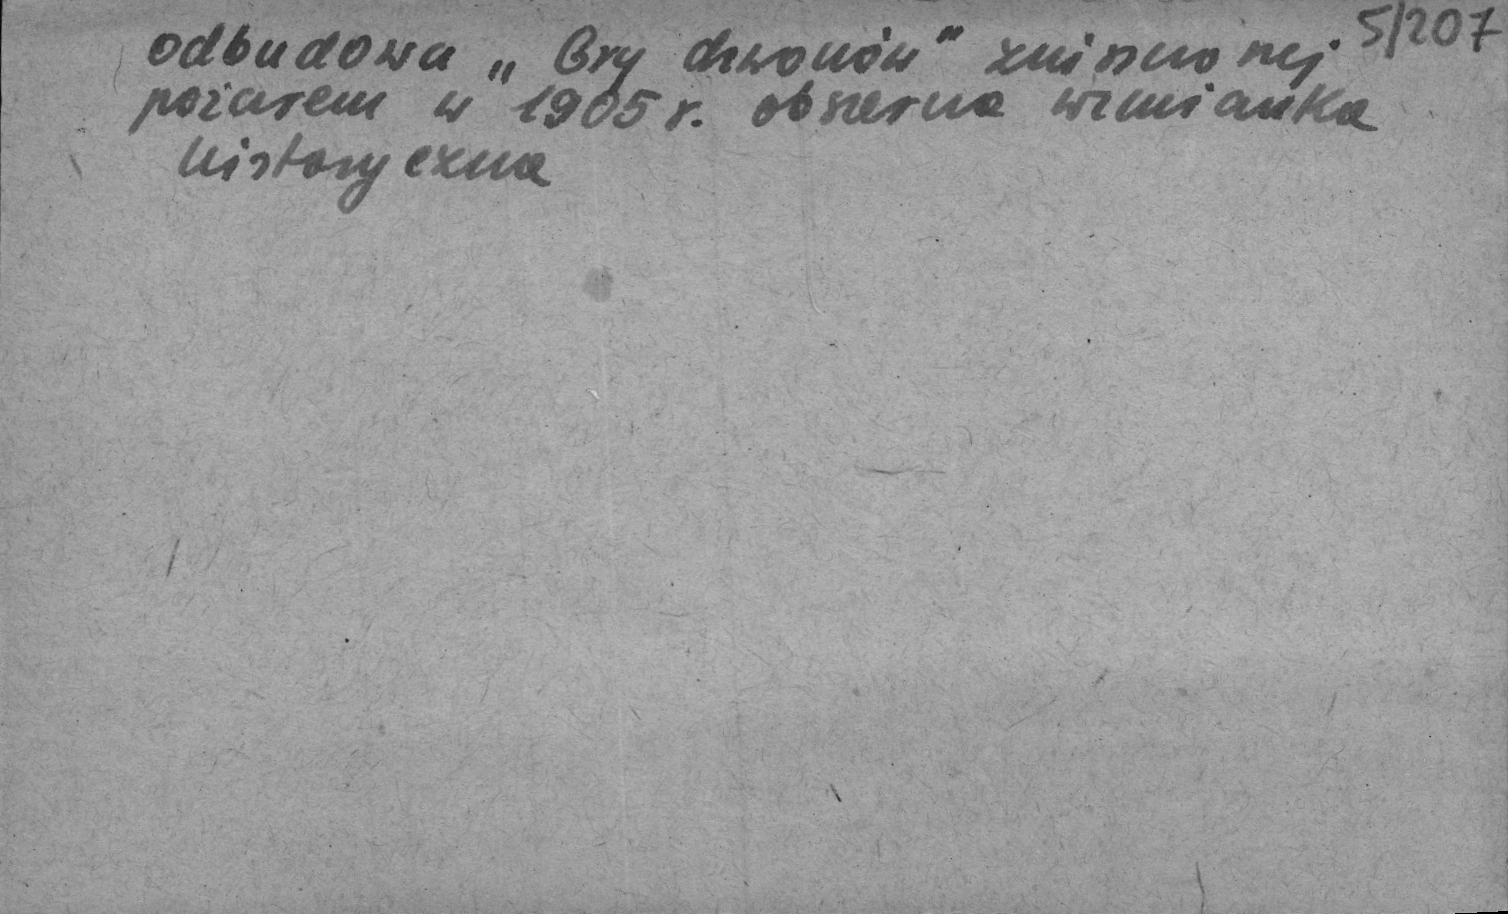 5/207
odbudowa „Gry dzwonów" zniszczonej
pożarem w 1905 r. obszerna wzmianka
historyczna